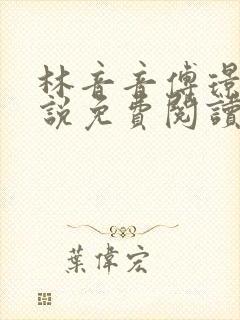 林音音傅璟
說免費閱讀
葉偉宏